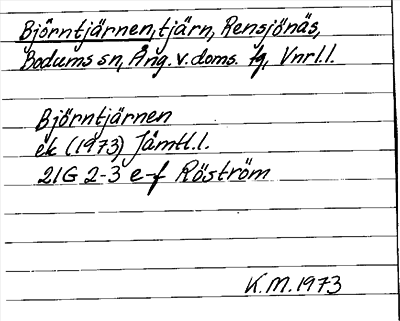 Björntjärnen, tjärn, Rensjönäs,
Bodums sn, Ång. v. doms. tg, Vnrl.l.
Björntjärnen
ek (1973) Jämtl.l.
21G 2-3 e-f Röström
K.M. 1973